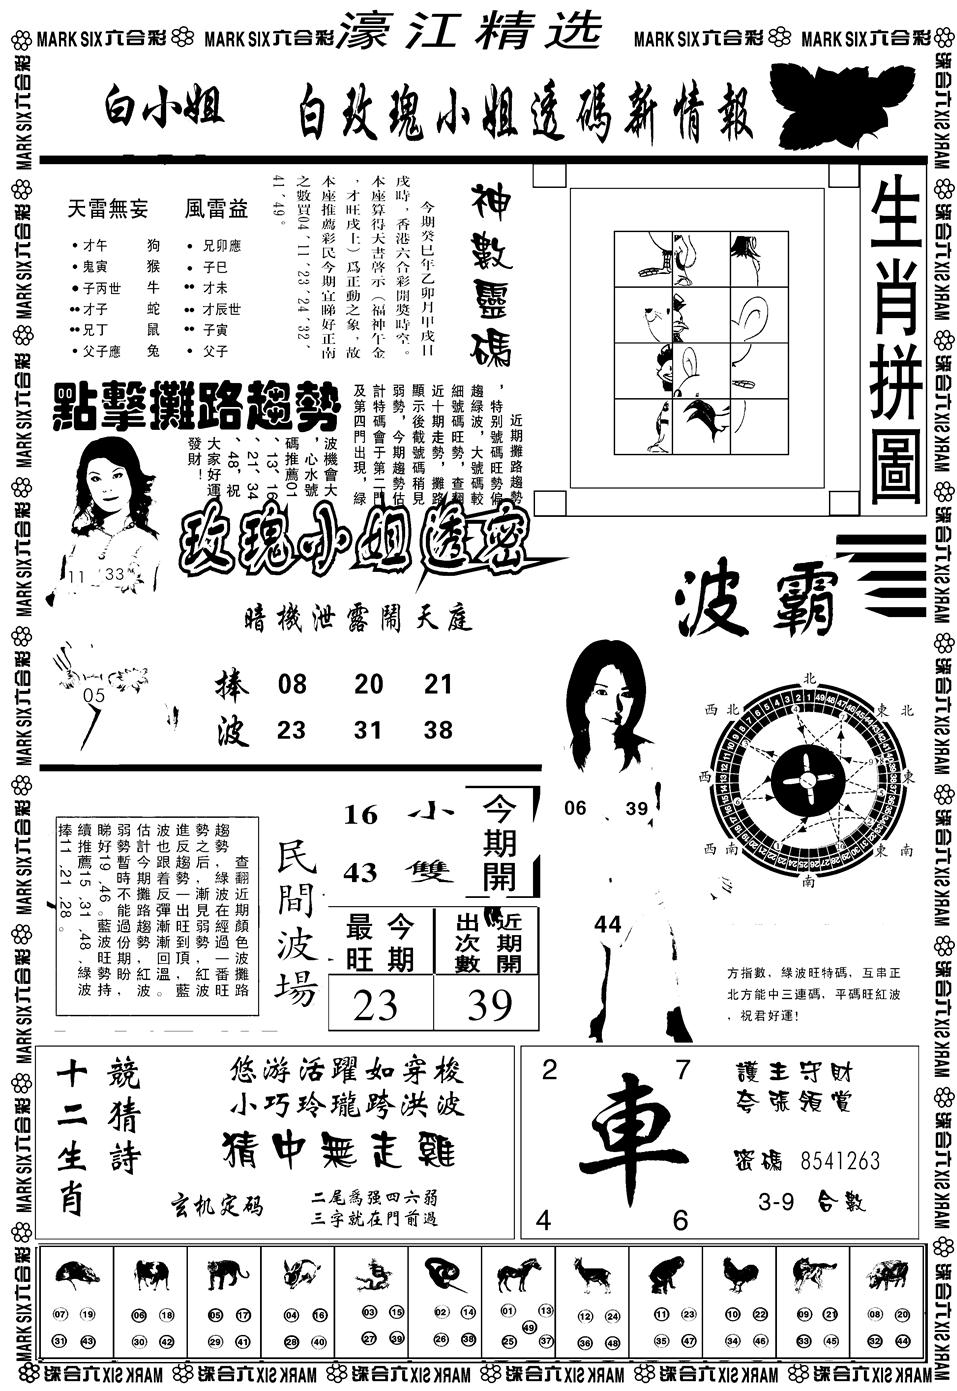 MARK SIX六合彩 MARK SIX六合彩 濠江精选 MARK SIX六合彩 MARK SIX六合彩
白小姐 白玫瑰小姐透碼新情報
天雷無妄 風雷益
•才午 狗 •兄卯應
•鬼寅 猴 •子巳
•子丙世 牛 ••才未
••才子 蛇 ••才辰世
••兄丁 鼠 ••子寅
•父子應 兔 •父子
神數靈碼
今期癸巳年乙卯月甲戌日
戌時，香港六合彩開獎時空。
本座算得天書啓示（福神午金
，才旺戌上）爲正動之象，故
本座推薦彩民今期宜睇好正南
之數買04、11、23、24、32、
41、49。
生肖拼圖
點擊攤路趨勢
近期攤路趨勢
，特別號碼旺勢偏
趨綠波，大號碼較
細號碼旺勢，查翻
近十期走勢，攤路
顯示後截號碼稍見
弱勢，今期趨勢估
計特碼會于第二門
及第四門出現，綠
波機會大
，心水號
碼推薦01
、13、16
、21、34
、48，祝
大家好運
發財！
11 33
05
玫瑰小姐透密
暗機泄露鬧天庭
捧 08 20 21
波 23 31 38
波霸
06 39
44
北
西北 東北
西 東
西南 東南
南
方指數，綠波旺特碼，互串正
北方能中三連碼，平碼旺紅波
，祝君好運！
查翻近期顏色波攤路
趨勢，綠波在經過一番旺
勢之后，漸見弱勢，紅波
進反趨勢一出旺到頂，藍
波也跟着反彈漸漸回溫。
估計今期攤路趨勢，紅波
弱勢暫時不能過份期盼，
睇好19、46。藍波旺勢持
續推薦15、31、48，綠波
捧11、21、28。
民間波場
16 小
43 雙
今期開
今期最旺
近期開出次數
23 39
十二生肖
競猜詩
悠游活躍如穿梭
小巧玲瓏跨洪波
猜中無走雞
玄机定码
二尾爲强四六弱
三字就在門前過
2 7
車
4 6
護主守財
夸張領賞
密碼 8541263
3-9 合數
07 19 06 18 05 17 04 16 03 15 02 14 01 13 12 24 11 23 10 22 09 21 08 20
49
31 43 30 42 29 41 28 40 27 39 26 38 25 37 36 48 35 47 34 46 33 45 32 44